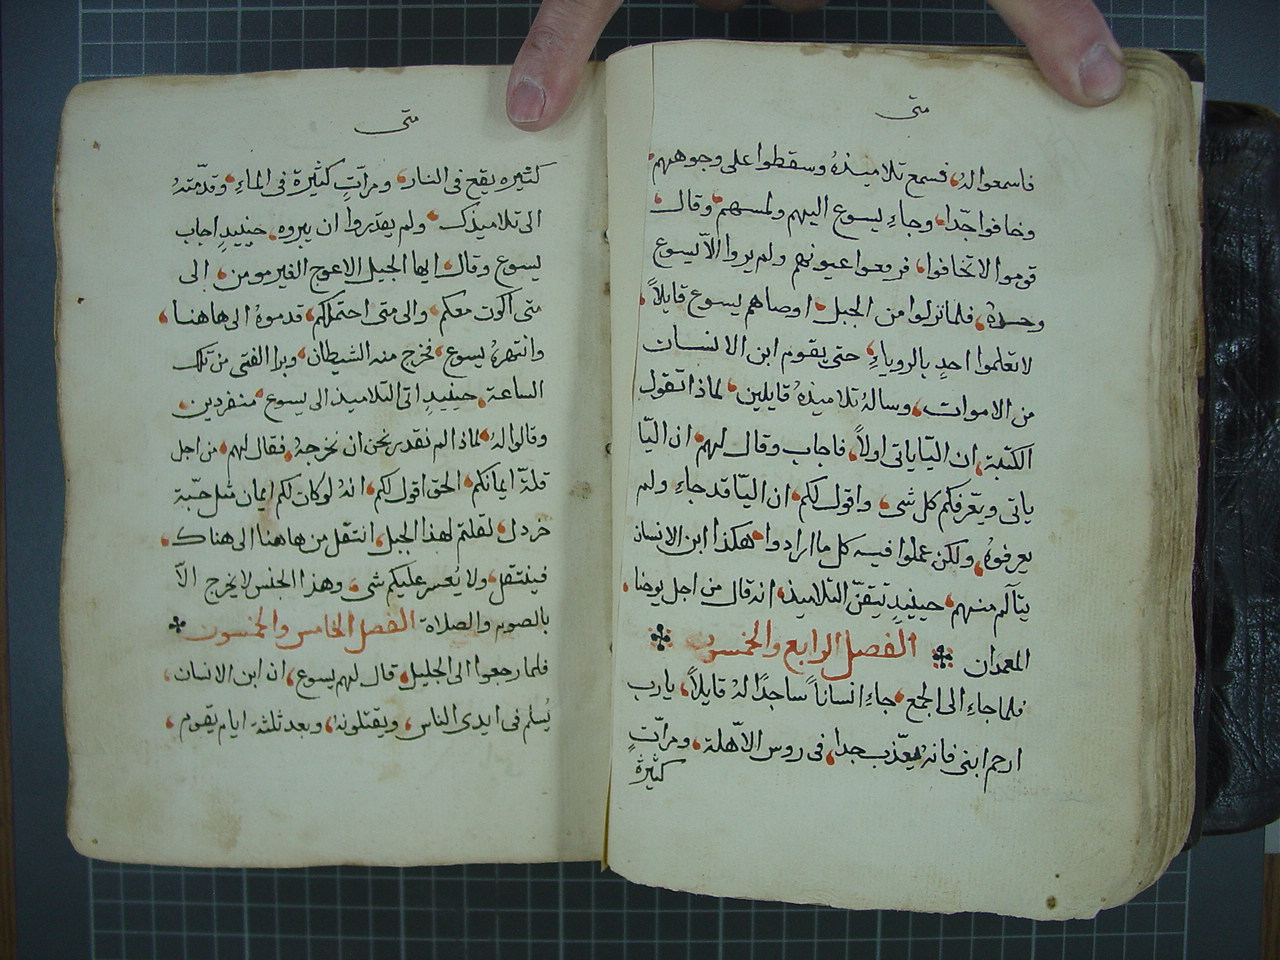 متى
فاسمعوا له، فسمع تلاميذهُ وسقطوا على وجوههم،
وخافوا جدّا، وجاءِ يسوع اليهم ولمسهم، وقال،
قوموا لا تخافوا، فرفعوا عيونهم ولم يروا الّا يسوع
وحدهُ، فلما نزلوا من الجبل، اوصاهم يسوع قايلاً،
لا تعلموا احدٍ بالروياءِ، حتى يقوم ابن الانسان
من الاموات، وسالهُ تلاميذهُ قايلين، لماذا تقول
الكتبة، ان اليّا ياتي اولاً، فاجاب وقال لهم، ان اليّا
ياتي ويعّرفكم كل شي، واقول لكم، ان اليّا قد جاءِ ولم
يعرفوهُ، ولكن عملوا فيه كل ما ارادوا، هكذا ابن الانسان
يتآلم منهم، حينيدٍ تيقنّ التلاميذ، انه قال من اجل يوحنا،
المعمدان الفصل الرابع والخمسون
فلما جاءِ الى الجمع، جاءِ انساناً ساجدًا لهُ قايلاً، يارب
ارحم ابني فانه يعّذب جدا، في روس الاّهلة، ومراّتٍ
كثيرة
متى
كثيره يقع في النار، ومراّتٍ كثيرة في الماءِ، وقدّمتهُ
الى تلاميذك، ولم يقدروا ان يبروه، حينيدٍ اجاب
يسوع وقال، ايها الجيل الاعوج الغير مومن، الى
متى اكون معكم، والى متى احتملكم، قدموهُ الى هاهنا،
وانتهرهُ يسوع، فخرج منه الشيطان، وبرا الفتى من تلك
الساعة، حينيدٍ اتى التلاميذ الى يسوع، منفردين،
وقالوا لهُ، لماذا لم نقدر نحن ان نخرجهُ، فقال لهم، من اجل
قلة ايمانكم، الحق اقول لكم، انهُ لو كان لكم ايمان مثل حبّة
خردل، لقلتم لهذا الجبل، انتقل من هاهنا الى هناك،
فينتقل، ولا يُعسر عليكم شي، وهذا الجنس لا يخرج الّا
بالصوم والصلاة الفصل الخامس والخمسون
فلما رجعوا الى الجليل، قال لهم يسوع، ان ابن الانسان،
يُسلم في ايدي الناس، ويقتلونهُ، وبعد ثلثة ايام يقوم،